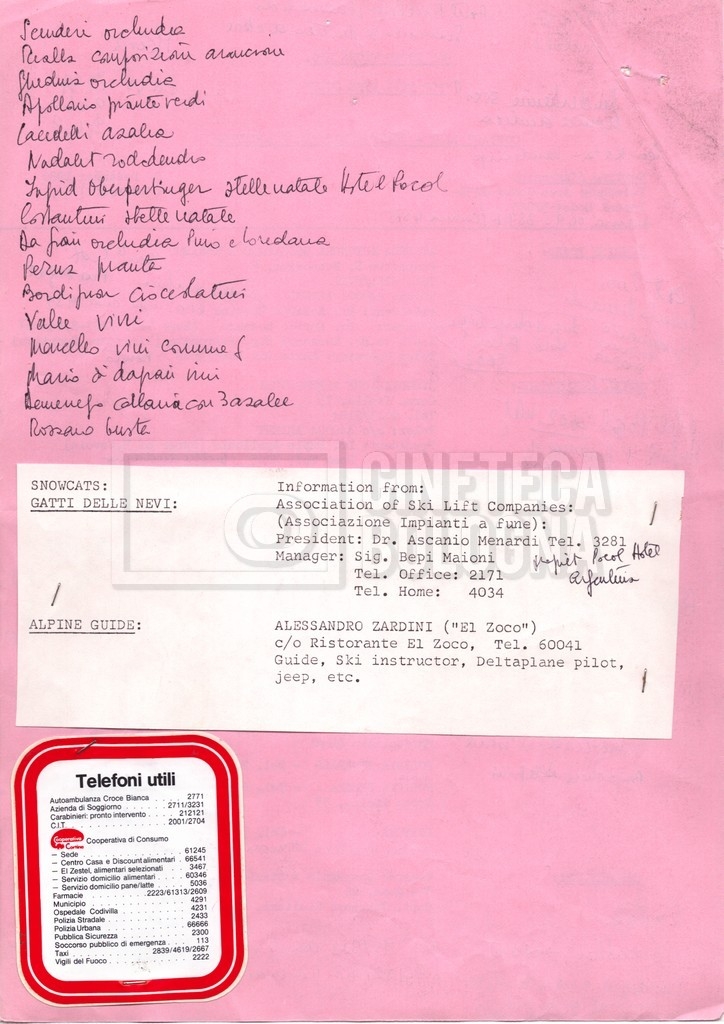 orchidea
composizione arancione
orchidea
Apollonio piante verdi
azalea
Nadalet rododendro
stelle natale Hotel Pocol
Costantini stelle natale
orchidea Pino e Loredana
pianta
cioccolatini
Valle vini
Marcello vini
Mario vini
con 3 azalee
Rossano busta
CINETECA
BOLOGNA
SNOWCATS: Information from:
GATTI DELLE NEVI: Association of Ski Lift Companies:
(Associazione Impianti a fune):
President: Dr. Ascanio Menardi Tel. 3281
Manager: Sig. Bepi Maioni Pocol Hotel
Tel. Office: 2171 Argentina
Tel. Home: 4034
ALPINE GUIDE: ALESSANDRO ZARDINI ("El Zoco")
c/o Ristorante El Zoco, Tel. 60041
Guide, Ski instructor, Deltaplane pilot,
jeep, etc.
Telefoni utili
Autoambulanza Croce Bianca 2771
Azienda di Soggiorno 2711/3231
Carabinieri: pronto intervento 212121
C.I.T. 2001/2704
Cooperativa Cortina Cooperativa di Consumo
— Sede 61245
— Centro Casa e Discount alimentari 66541
— El Zestel, alimentari selezionati 3467
— Servizio domicilio alimentari 60346
— Servizio domicilio pane/latte 5036
Farmacie 2223/61313/2609
Municipio 4291
Ospedale Codivilla 4231
Polizia Stradale 2433
Polizia Urbana 66666
Pubblica Sicurezza 2300
Soccorso pubblico di emergenza 113
Taxi 2839/4619/2667
Vigili del Fuoco 2222